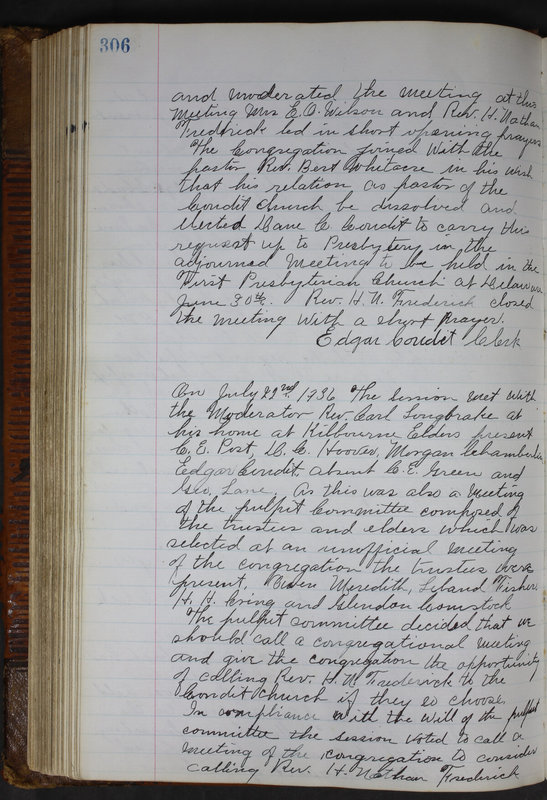 306
and moderated the meeting at this
meeting Mrs E.O. Wilson and Rev. H. Nathan
Fredrick led in short opening prayers
The Congregation joined with the
pastor Rev. Bert Whitacre in his wish
that his relation as pastor of the
Condit Church be dissolved and
elected C. Condit to carry this
request up to Presbytery in the
adjourned meeting to be held in the
First Presbyterian Church at Delaware
June 30th. Rev. H. N. Frederick closed
the meeting with a short Prayer.
Edgar Condit Clerk
On July 22nd. 1936 the session met with
the Moderator Rev. Carl Longbrake at
his home at Kilbourne Elders present
C. E. Post, C. C. Hoover, Morgan Chamberlin
Edgar Condit absent C. E. Green and
Geo, Lane. As this was also a meeting
of the pulpit Committee composed of
the trustees and elders which was
selected at an unofficial meeting
of the congregation the trustees were
present. Owen Meredith, Leland Fisher
H. H. and Glendon Comstock
The pulpit committee decided that we
should call a congregational meeting
and give the congregation the opportunity
of calling Rev. H. N. Frederick to the
Condit Church if they so choose.
In compliance with the will of the pulpit
committee the session voted to call a
meeting of the congregation to consider
calling Rev. H. Nathan Frederick